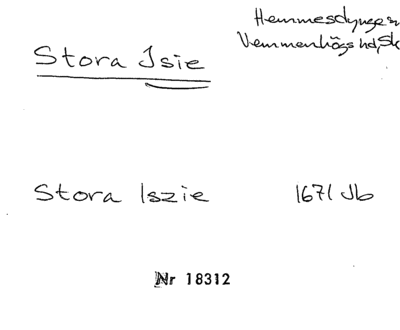 Hemmesdynge sn
Vemmenhögs hd, Sk
Stora Isie
Stora Iszie 1671 Jb
Nr 18312